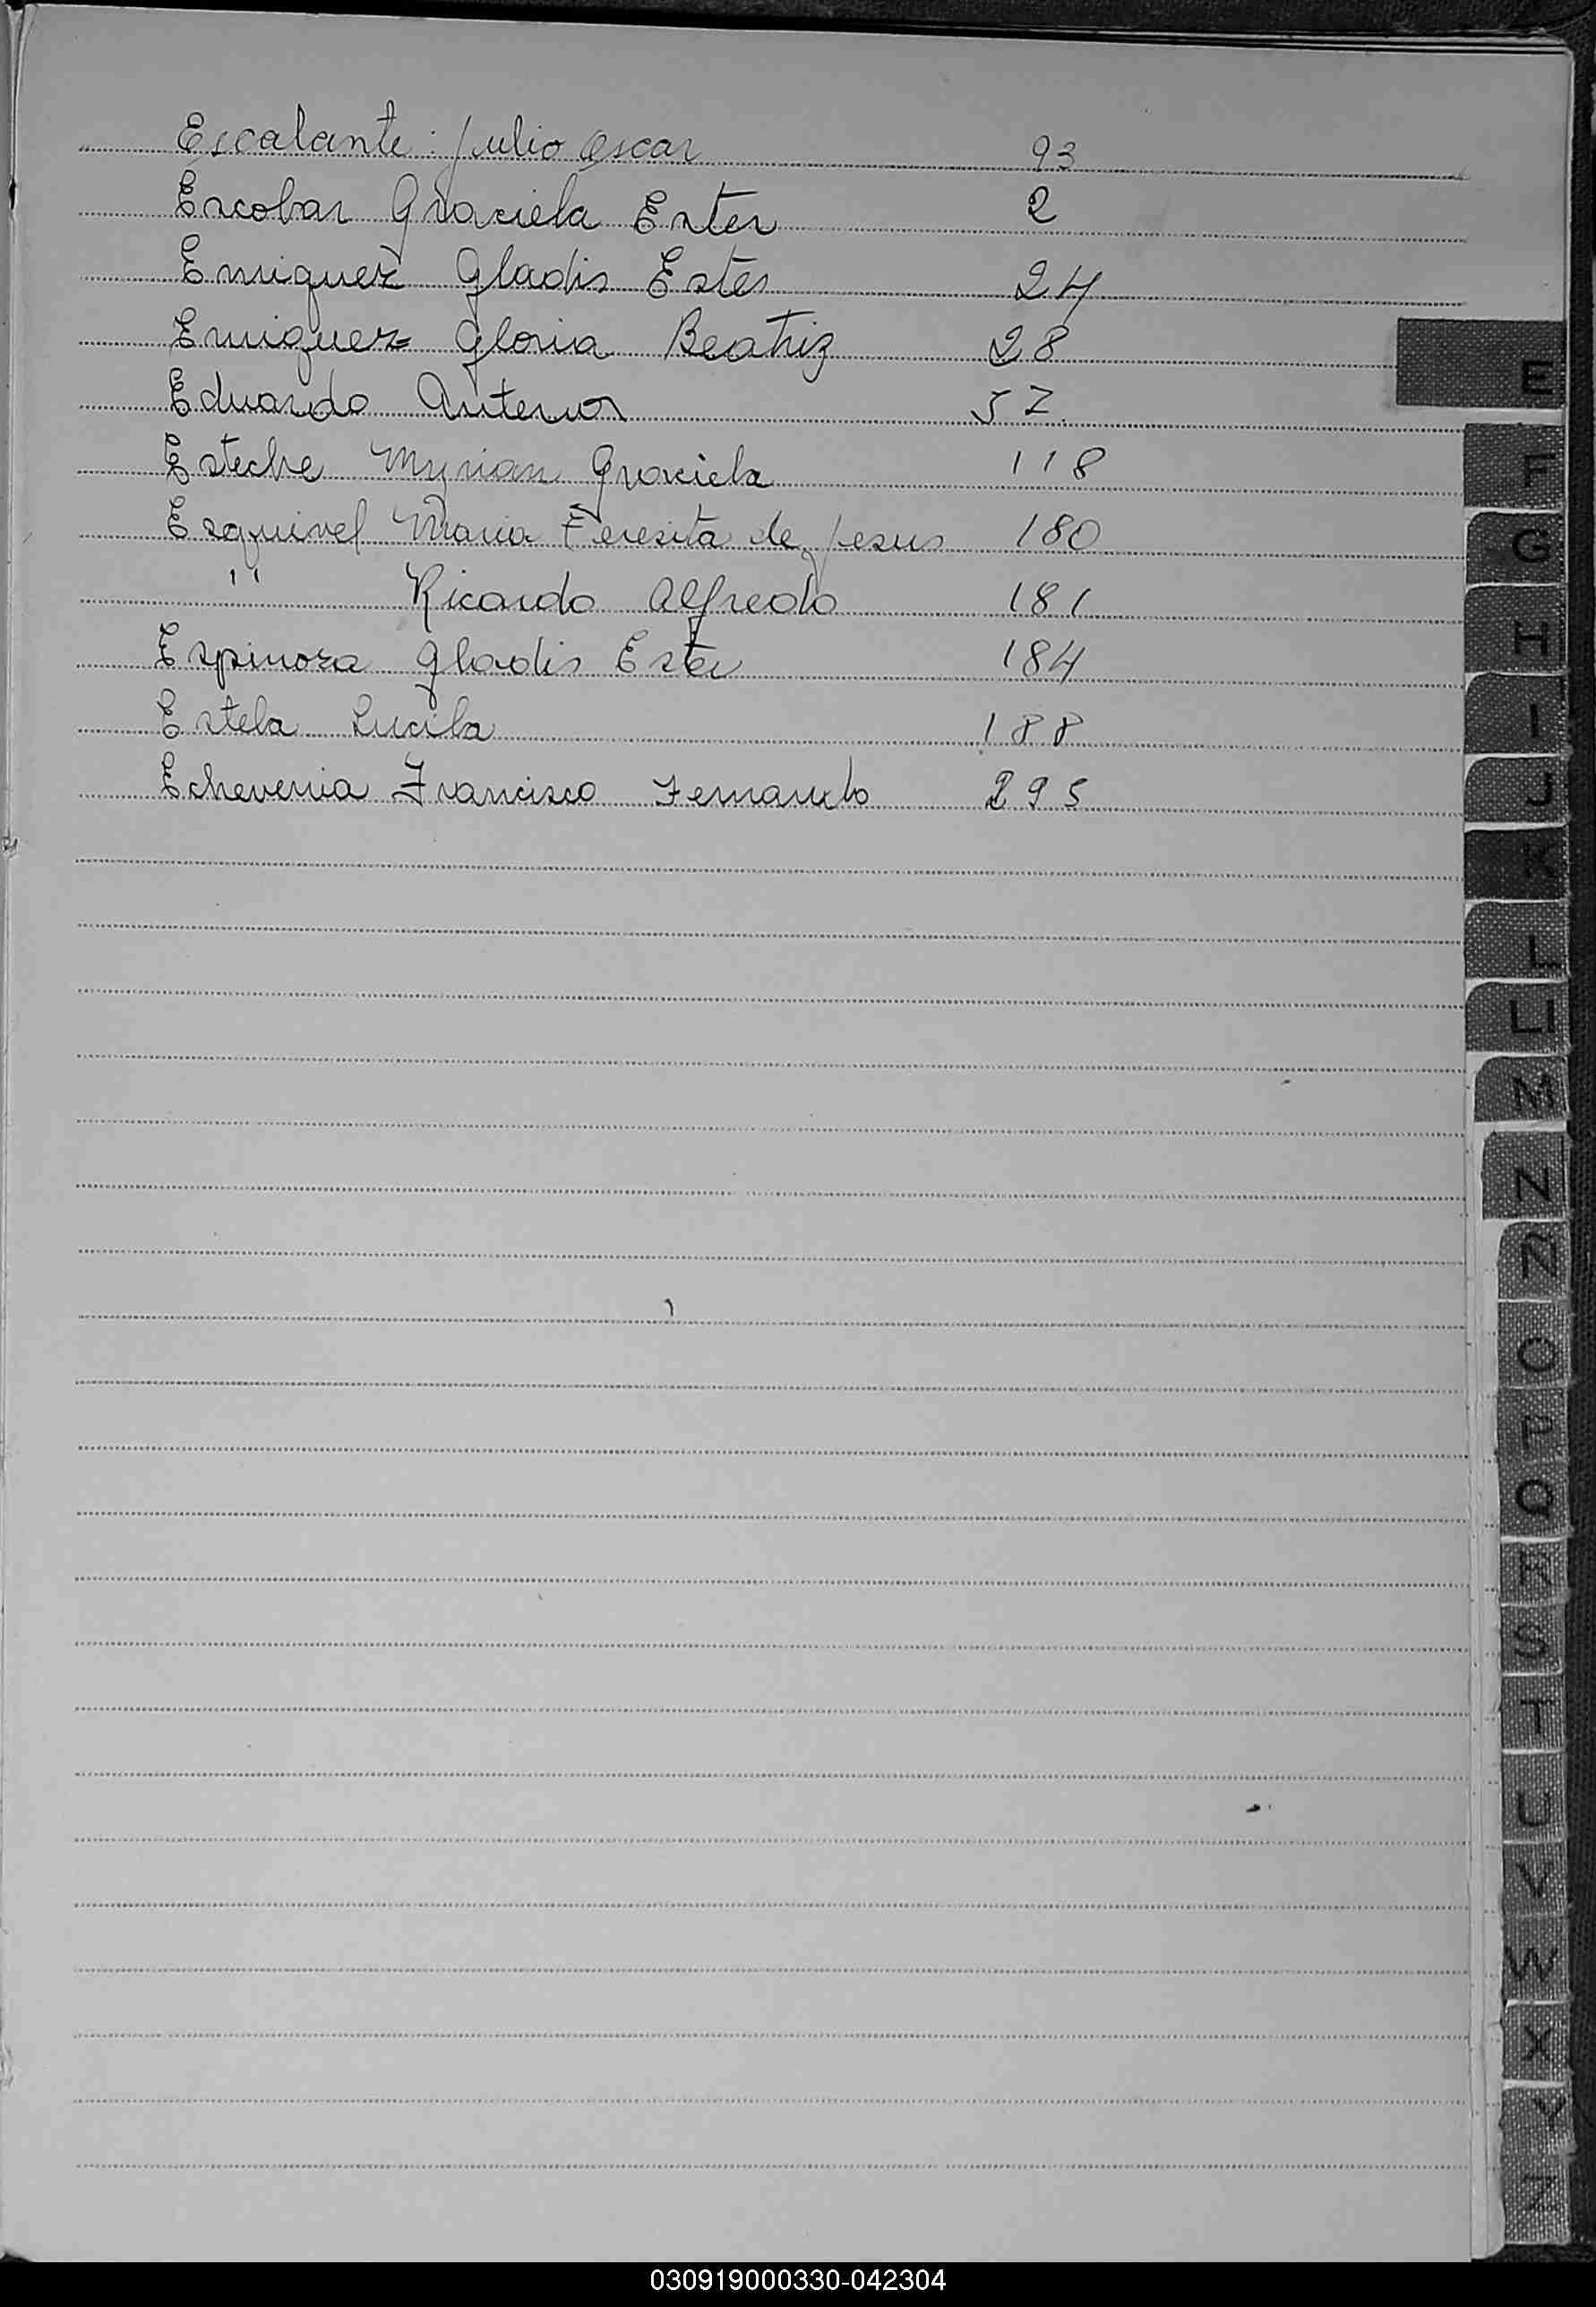 Escalante: Julio Oscar 93
Escobar Graciela Ester 2
Enriquez Gladis Ester 24
Enriquez Gloria Beatriz 28
Eduardo Antenor 57
Esteche Myrian Graciela 118
Esquivel Maria Teresita de Jesus 180
" Ricardo Alfredo 181
Espinoza Gladis Ester 184
Estela Lucila 188
Echeverria Francisco Fernando 295
E
F
G
H
I
J
K
L
LL
M
N
Ñ
O
P
Q
R
S
T
U
V
W
X
Y
Z
030919000330-042304